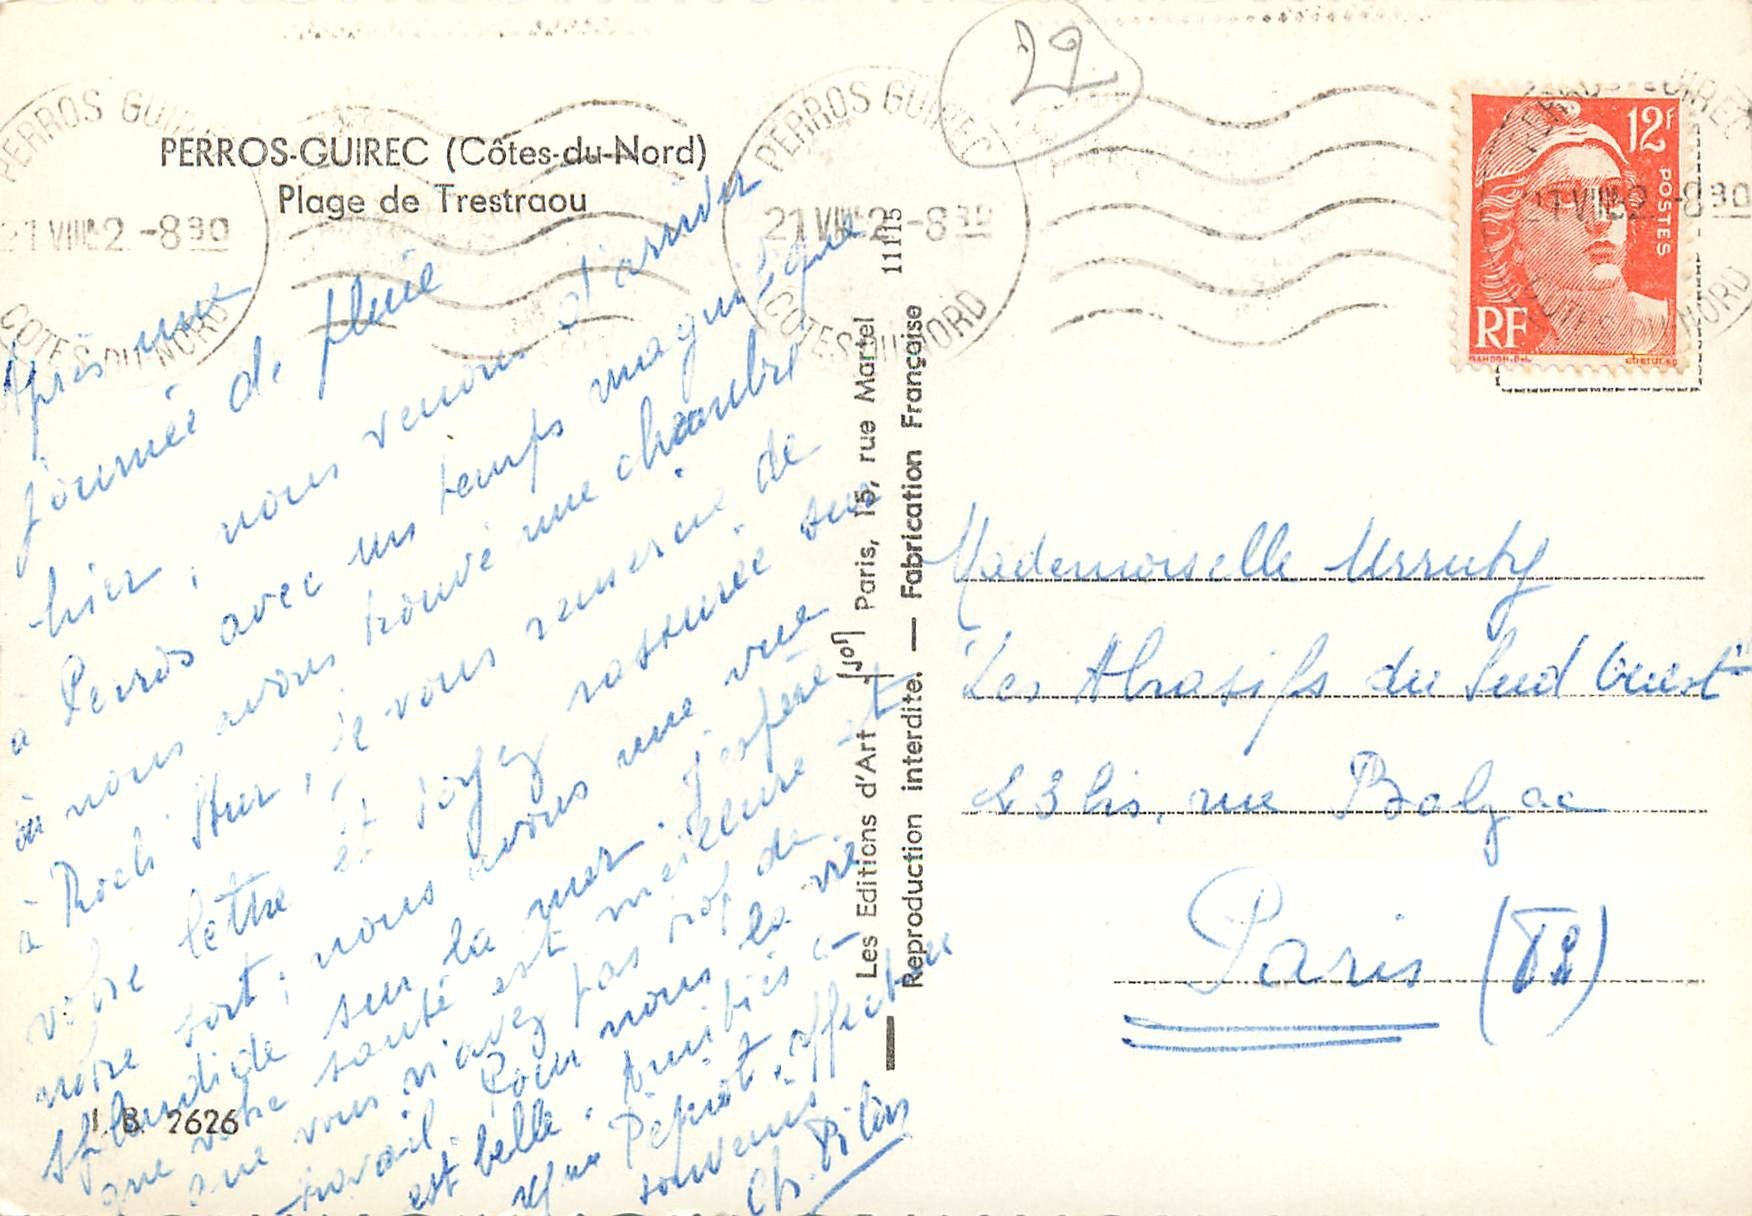 PERROS-GUIREC (Côtes-du-Nord)
Plage de Trestraou
PERROS GUIREC
21 VIII 2 - 8 30
COTES DU NORD
PERROS GUIREC
21 VIII 2 - 8 30
COTES DU NORD
22
12F
POSTES
RF
PERROS-GUIREC
21 VIII 2 - 8 30
COTES DU NORD
Après une
journée de pluie
hier, nous venons d'arriver
à Perros avec un temps magnifique
où nous avons trouvé une chambre
à Roch Hur, je vous remercie de
votre lettre et soyez rassurée sur
notre sort ; nous avons une vue
splendide sur la mer. J'espère
que votre santé est meilleure et
que vous n'avez pas trop de
travail. Pour nous la vie
est belle. Amitiés à
Pepiot. affectueux
souvenirs
Ch.
J. B. 2626
Les Editions d'Art Jyon Paris, 15, rue Martel 11115
Reproduction interdite. — Fabrication Française
Mademoiselle Urruty
"Les Abrasifs du Sud Ouest"
23 bis, rue Balzac
Paris (T8)